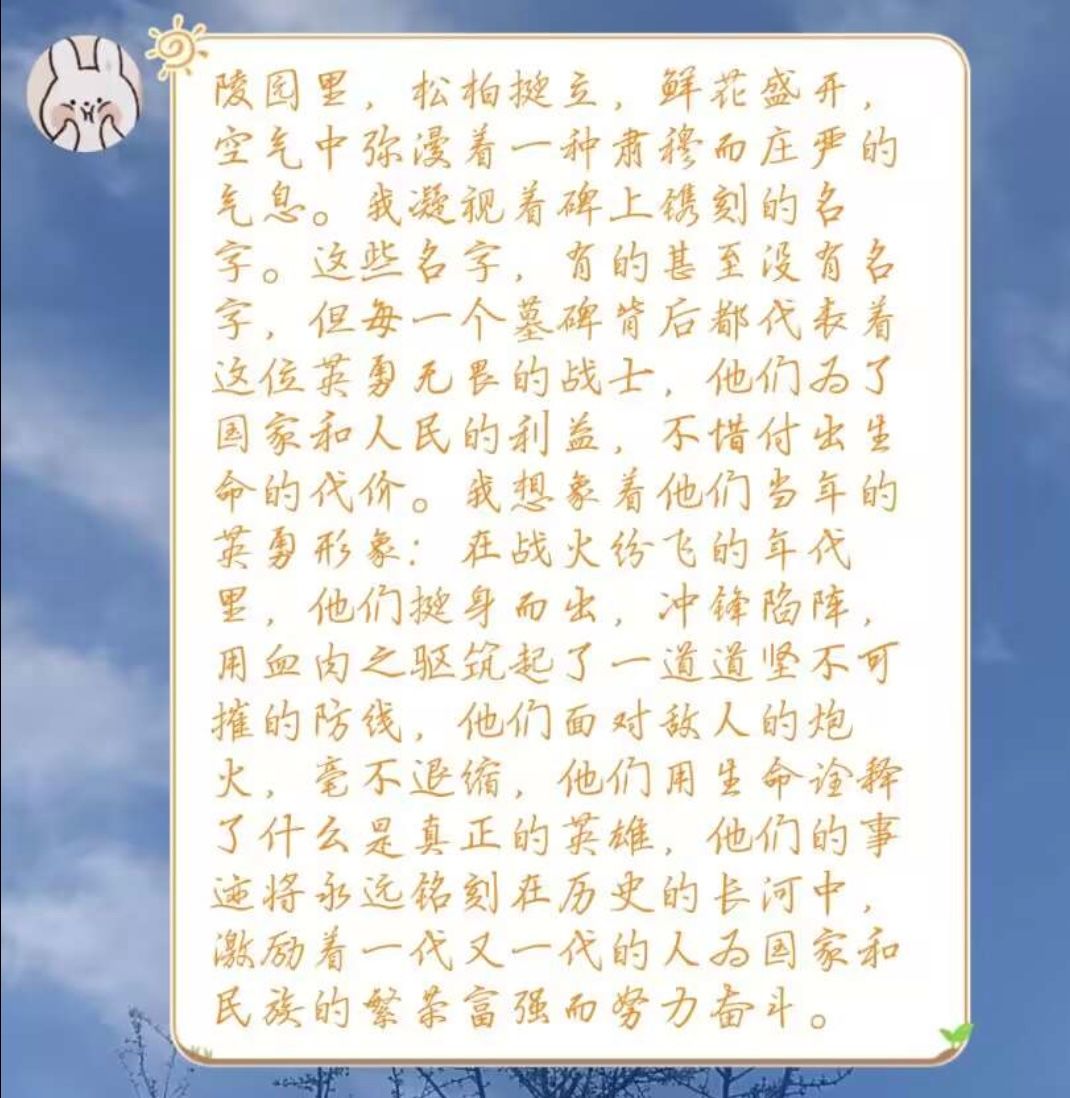 陵园里，松柏挺立，鲜花盛开，
空气中弥漫着一种肃穆而庄严的
气息。我凝视着碑上镌刻的名
字。这些名字，有的甚至没有名
字，但每一个墓碑背后都代表着
这位英勇无畏的战士，他们为了
国家和人民的利益，不惜付出生
命的代价。我想象着他们当年的
英勇形象：在战火纷飞的年代
里，他们挺身而出，冲锋陷阵，
用血肉之驱筑起了一道道坚不可
摧的防线，他们面对敌人的炮
火，毫不退缩，他们用生命诠释
了什么是真正的英雄，他们的事
迹将永远铭刻在历史的长河中，
激励着一代又一代的人为国家和
民族的繁荣富强而努力奋斗。